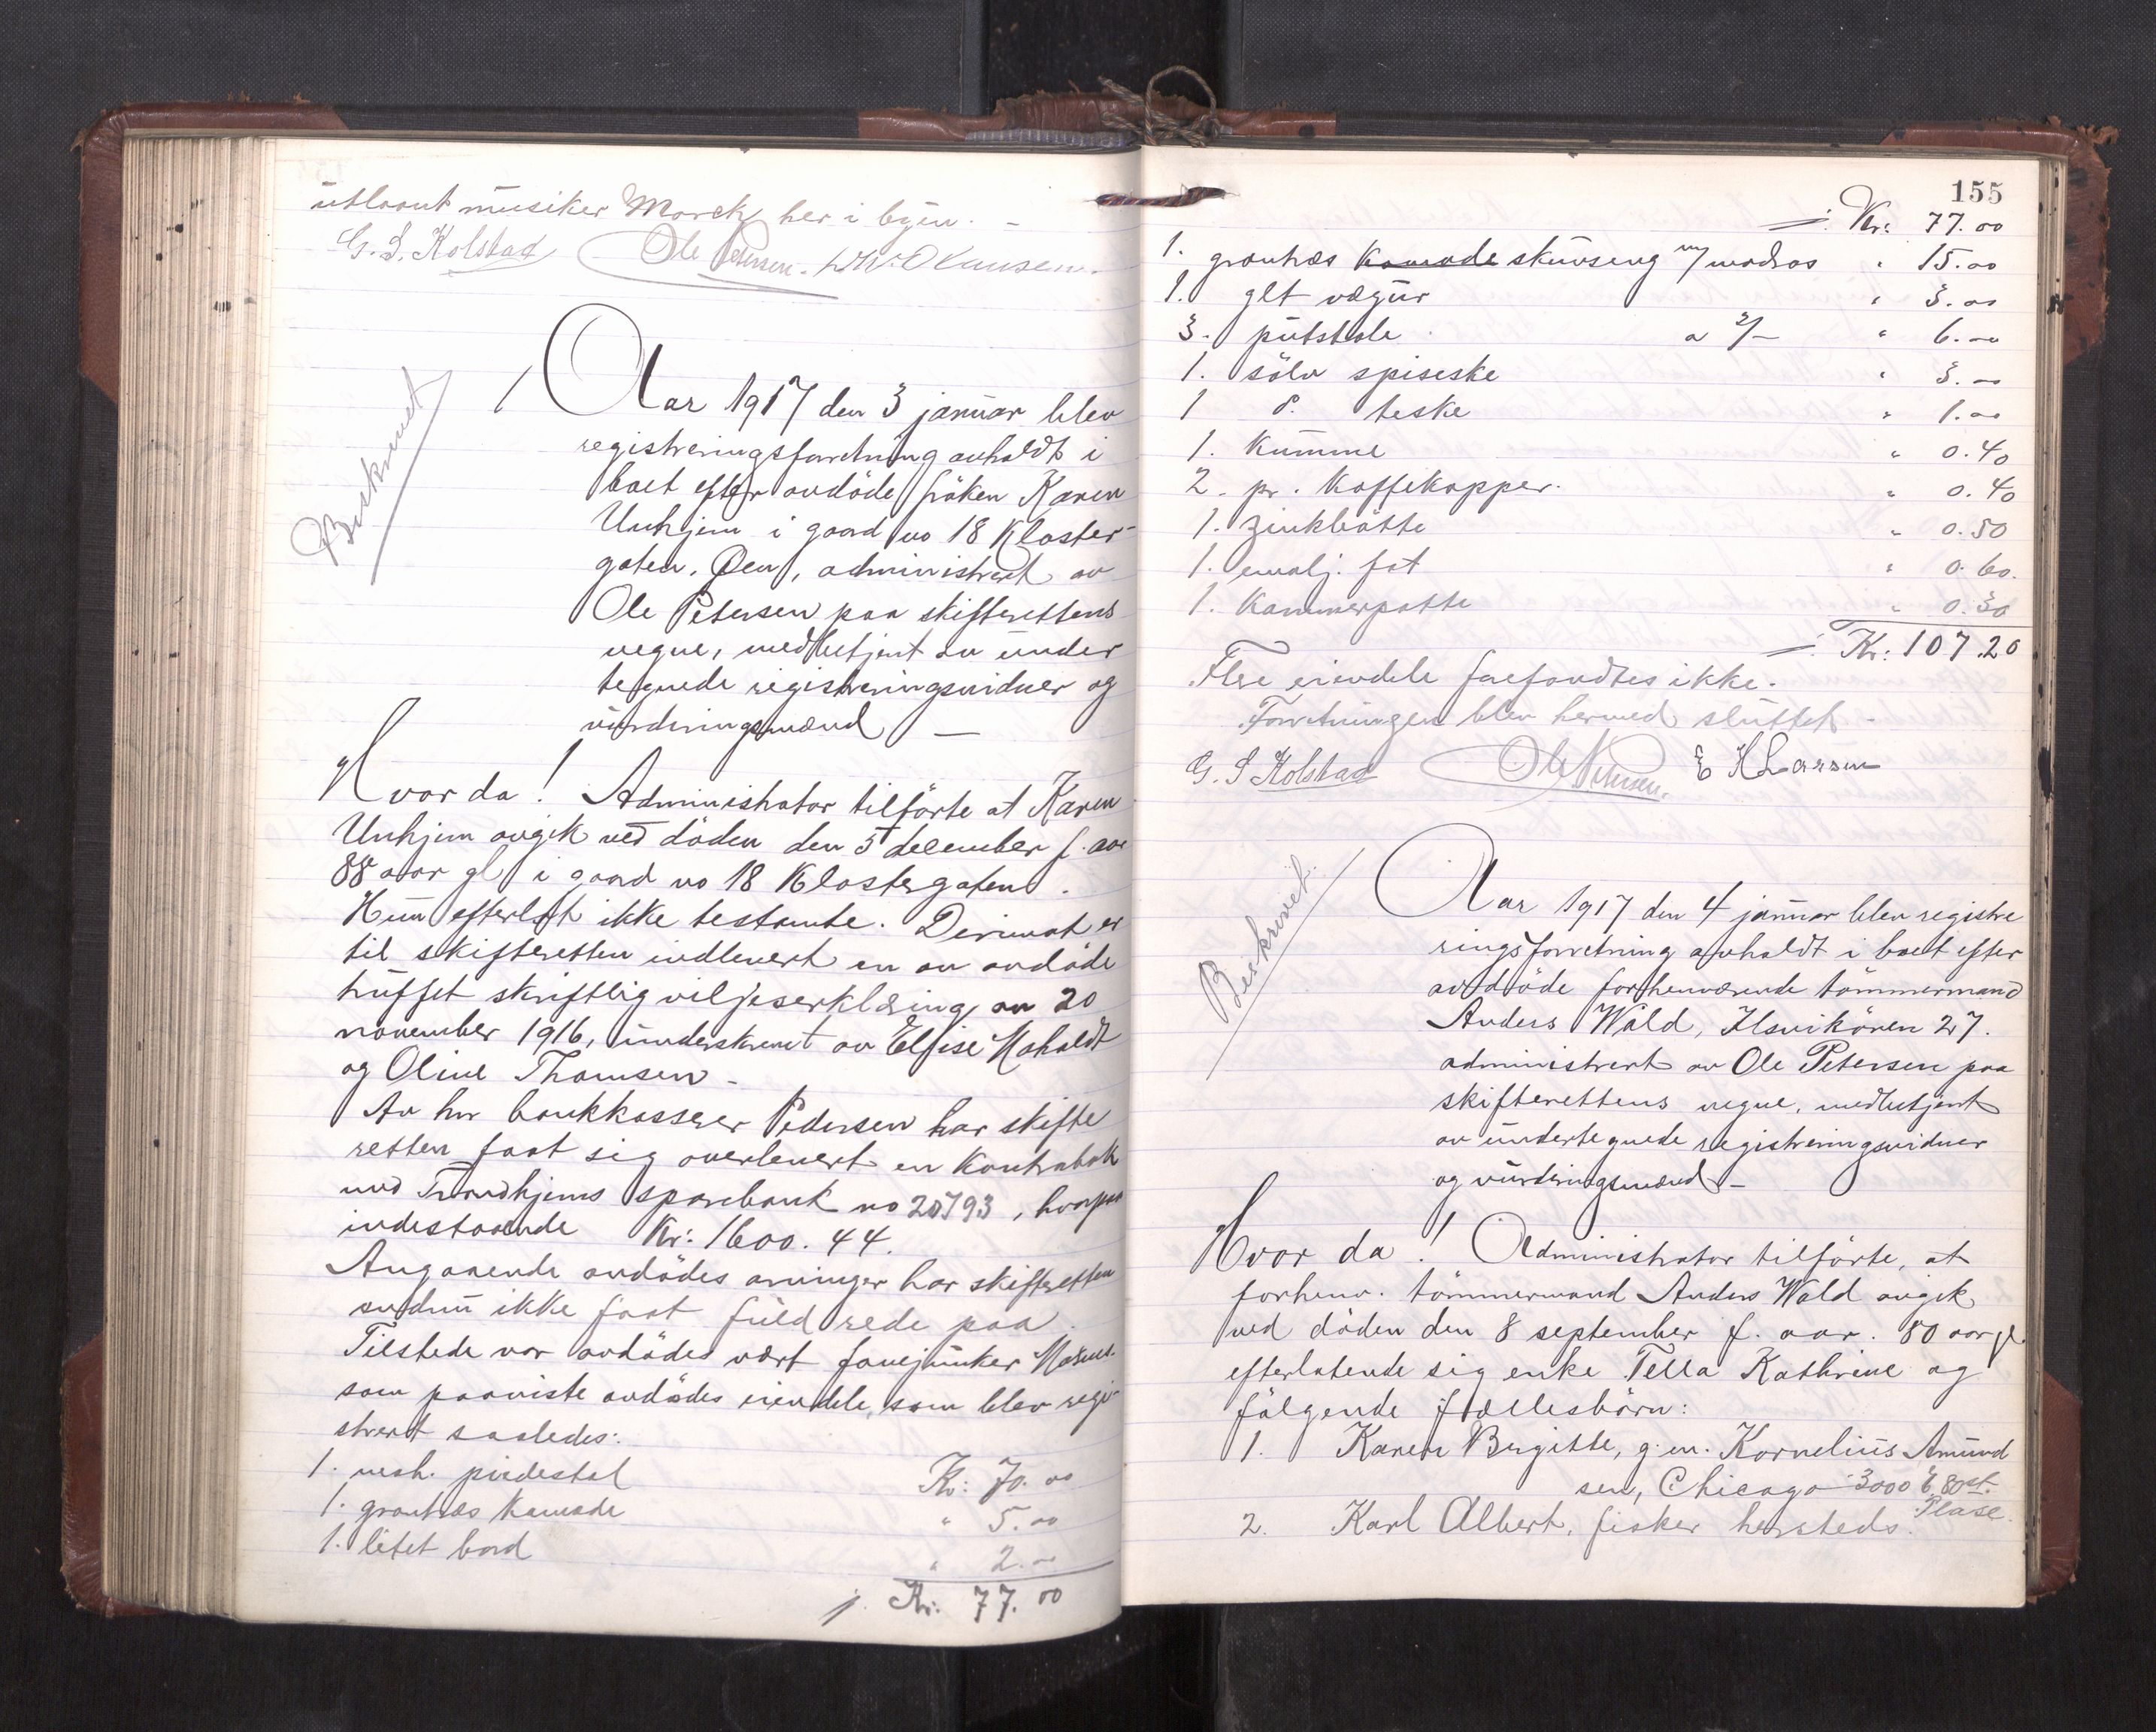 utlaant musiker Marck her i byen. –
G. S. Kolstad Ole Petersen. Clausen.
Beskrevet
Aar 1917 den 3 januar blev
registreringsforretning avholdt i
boet efter avdöde fröken Karen
Unhjem i gaard no 18 Kloster-
gaten, Öen, administrert av
Ole Petersen paa skifterettens
vegne, medbetjent av under
tegnede registreringsvidner og
vurderingsmænd —
Hvor da! Administrator tilförte at Karen
Unhjem avgik ved döden den 5 december f. aar
88 aar gl i gaard no 18 Klostergaten.
Hun efterlot ikke testamte. Derimot er
til skifteretten indlevert en av avdöde
truffet skriftlig viljeserklæring av 20
november 1916, underskrevet av Elise Moholdt
og Oline Thomsen –
Av hr bankkasserer Pedersen har skifte
retten faat sig overlevert en Kontrabok
med Trondhjems sparebank no 20793, hvorpaa
indestaaende Kr: 1600.44.
Angaaende avdödes arvinger har skifteretten
endnu ikke faat fuld rede paa.
Tilstede var avdödes vært fanejunker
som paaviste avdödes eiendele, som blev regi-
strert saaledes:
1. mah. pidestal Kr: 70.00
1. grantræs Komode " 5.00
1. litet bord " 2.00
Kr: 77.00
155
Kr: 77.00
1. grantræs Komode skuvseng m/ madras " 15.00
1. glt vægur " 3.00
3. putstole a 2/– " 6.00
1. sölv spiseske " 3.00
1 d. teske " 1.00
1. Kumme " 0.40
2. pr. Kaffekopper. " 0.40
1. zinkbötte " 0.50
1. emalj. fat " 0.60.
1. Kammerpotte " 0.30
Kr: 107.20
Flere eiendele forefandtes ikke.
Forretningen blev hermed sluttet –
G. S Kolstad Ole Petersen. E H Larsen
Beskrevet.
Aar 1917 den 4 januar blev registre
ringsforretning avholdt i boet efter
avdöde forhenværende tömmermand
Anders Wald, Ilsvikören 27.
administrert av Ole Petersen paa
skifterettens vegne, medbetjent
av undertegnede registreringsvidner
og vurderingsmænd –
Hvor da! Administrator tilförte, at
forhenv. tömmermand Anders Wald avgik
ved döden den 8 september f. aar. 80 aar gl.
efterlatende sig enke Tella Kathrine og
fölgende fællesbörn:
1. Karen Birgitte, g.m. Kornelius Amund
sen, Chicago 3000 E. 80st.
Place.
2. Karl Albert, fisker hersteds.